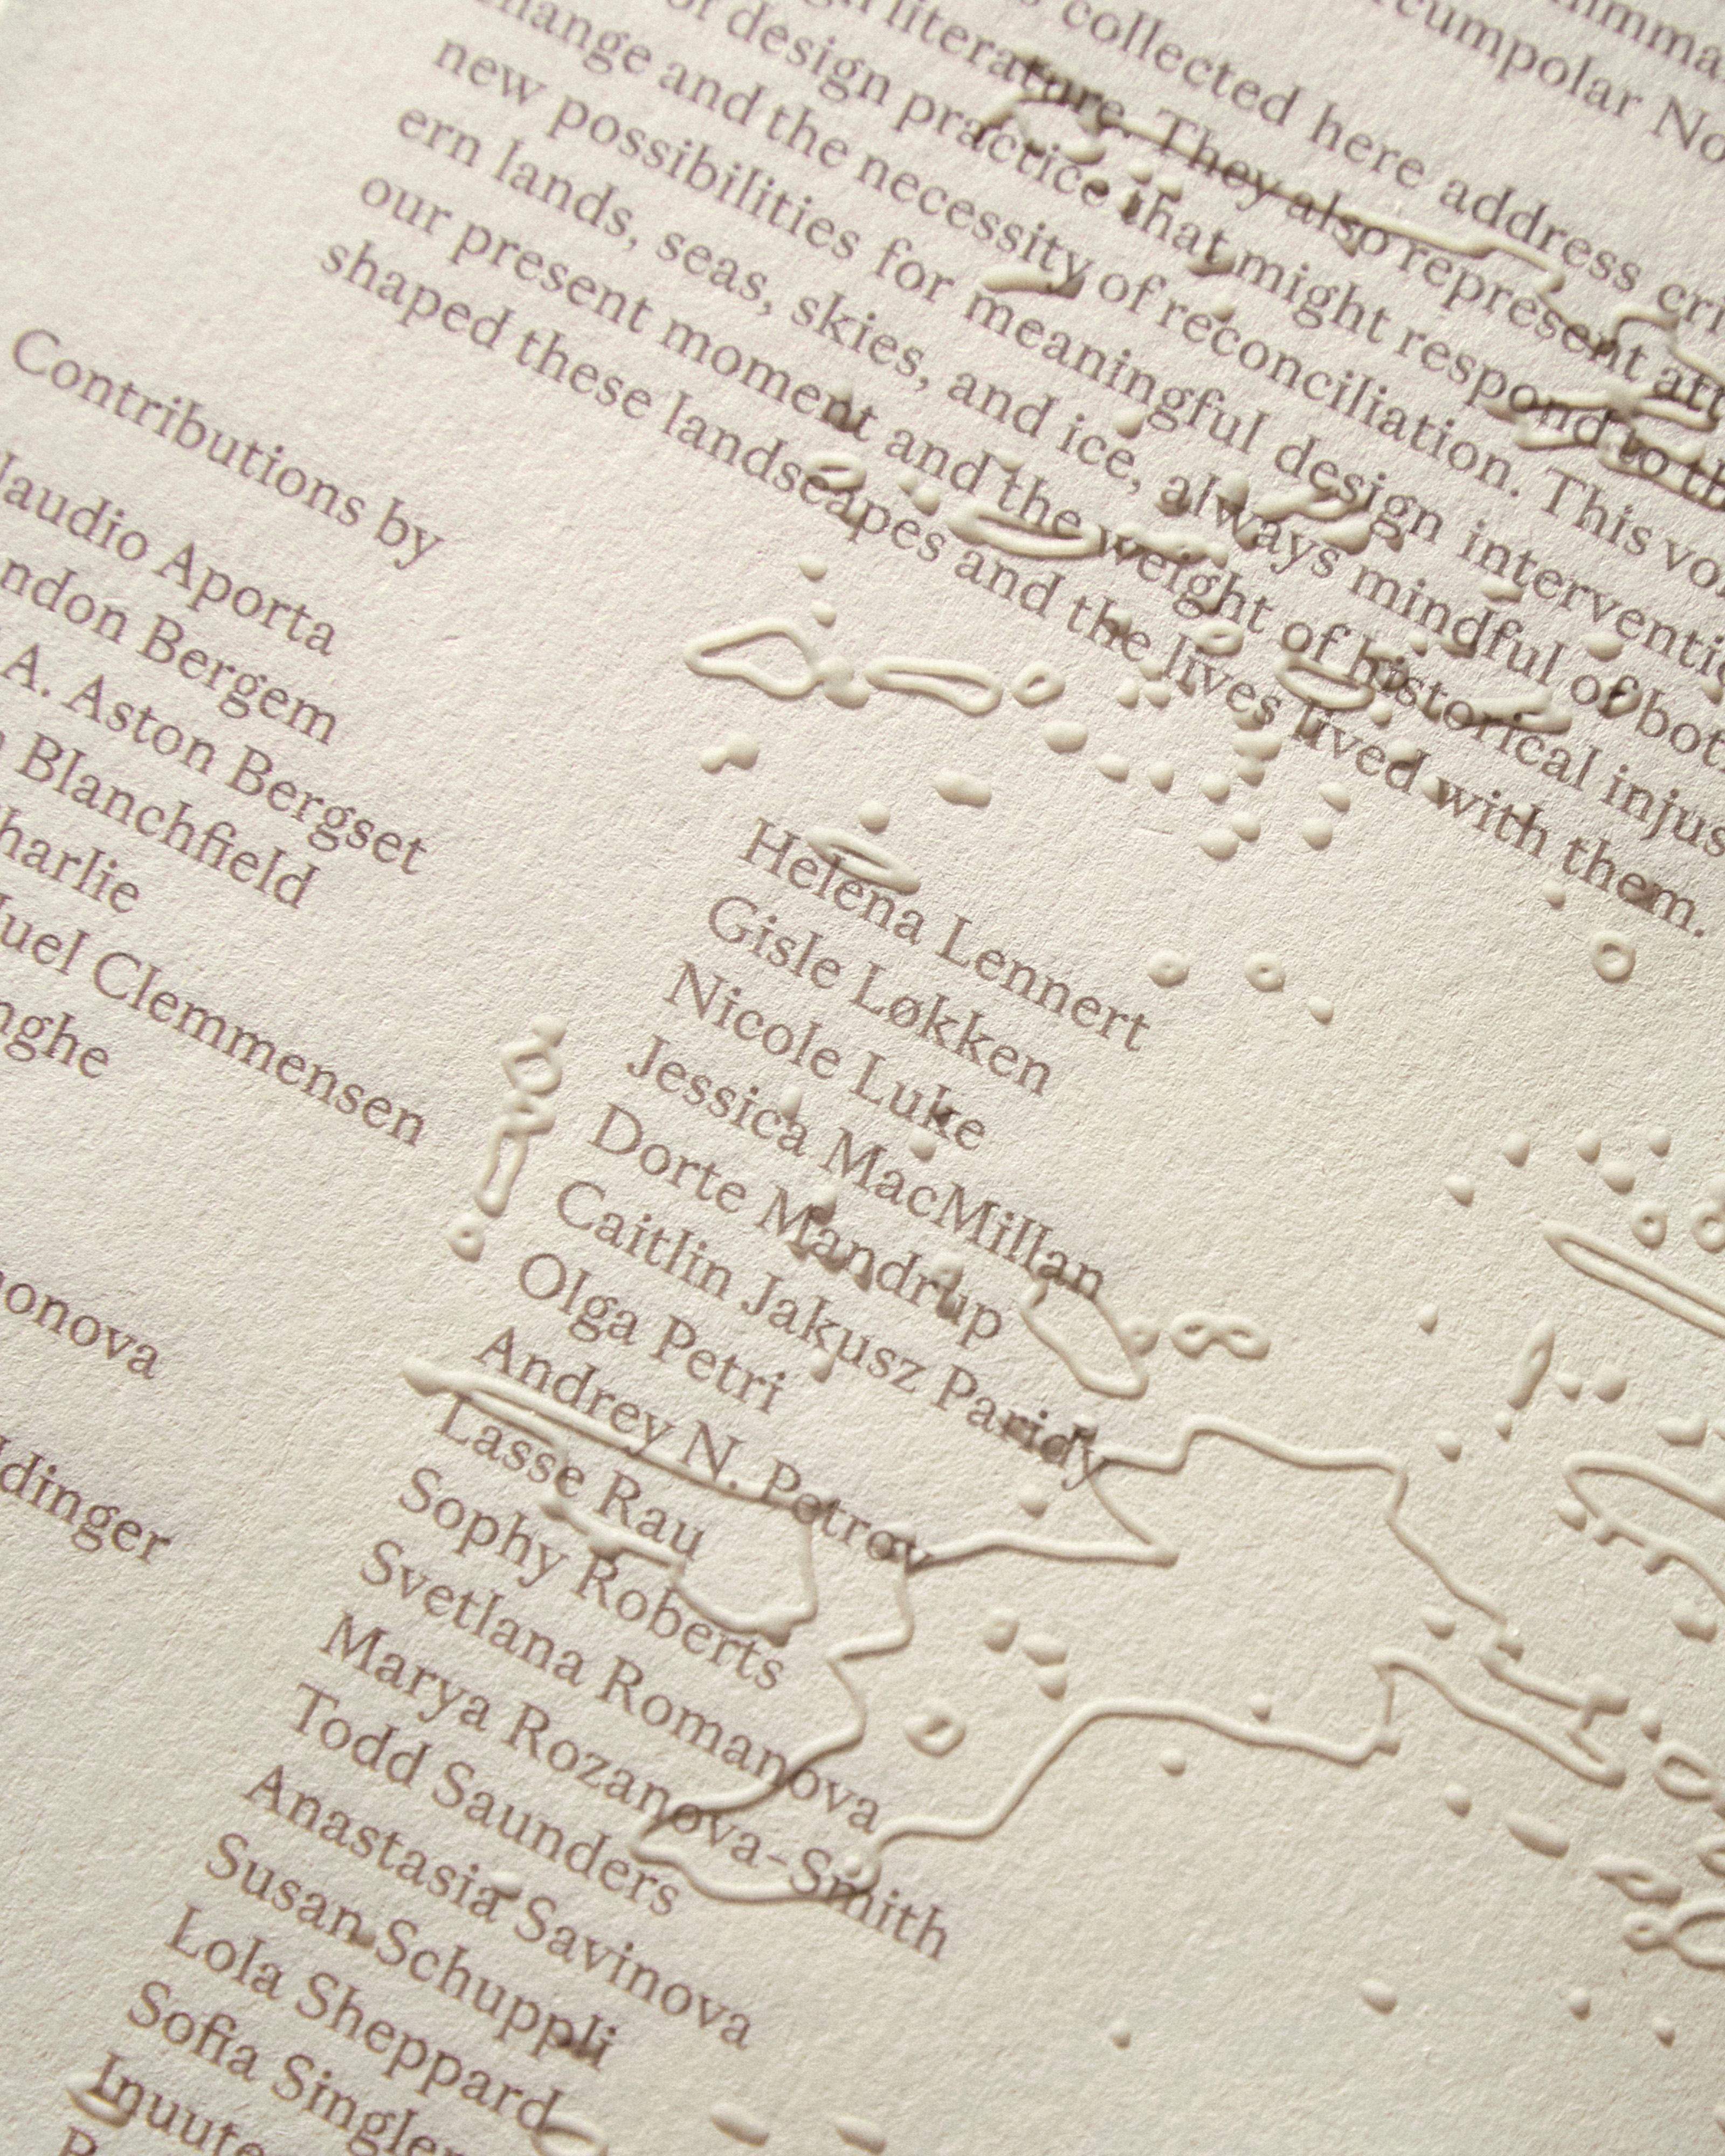 cumpolar No
collected here address
literature. They also represent
design practice that might respond to
and the necessity of reconciliation. This
new possibilities for meaningful design
ern lands, seas, skies, and ice, always mindful of
our present moment and the weight of historical
shaped these landscapes and the lives lived with them.
Contributions by
Aporta
Bergem
A. Aston Bergset
Blanchfield
Clemmensen
Helena Lennert
Gisle Løkken
Nicole Luke
Jessica MacMillan
Dorte Mandrup
Caitlin Jakusz Paridy
Olga Petri
Andrey N. Petrov
Lasse Rau
Sophy Roberts
Svetlana Romanova
Marya Rozanova-Smith
Todd Saunders
Anastasia Savinova
Susan Schuppli
Lola Sheppard
Sofia Singler